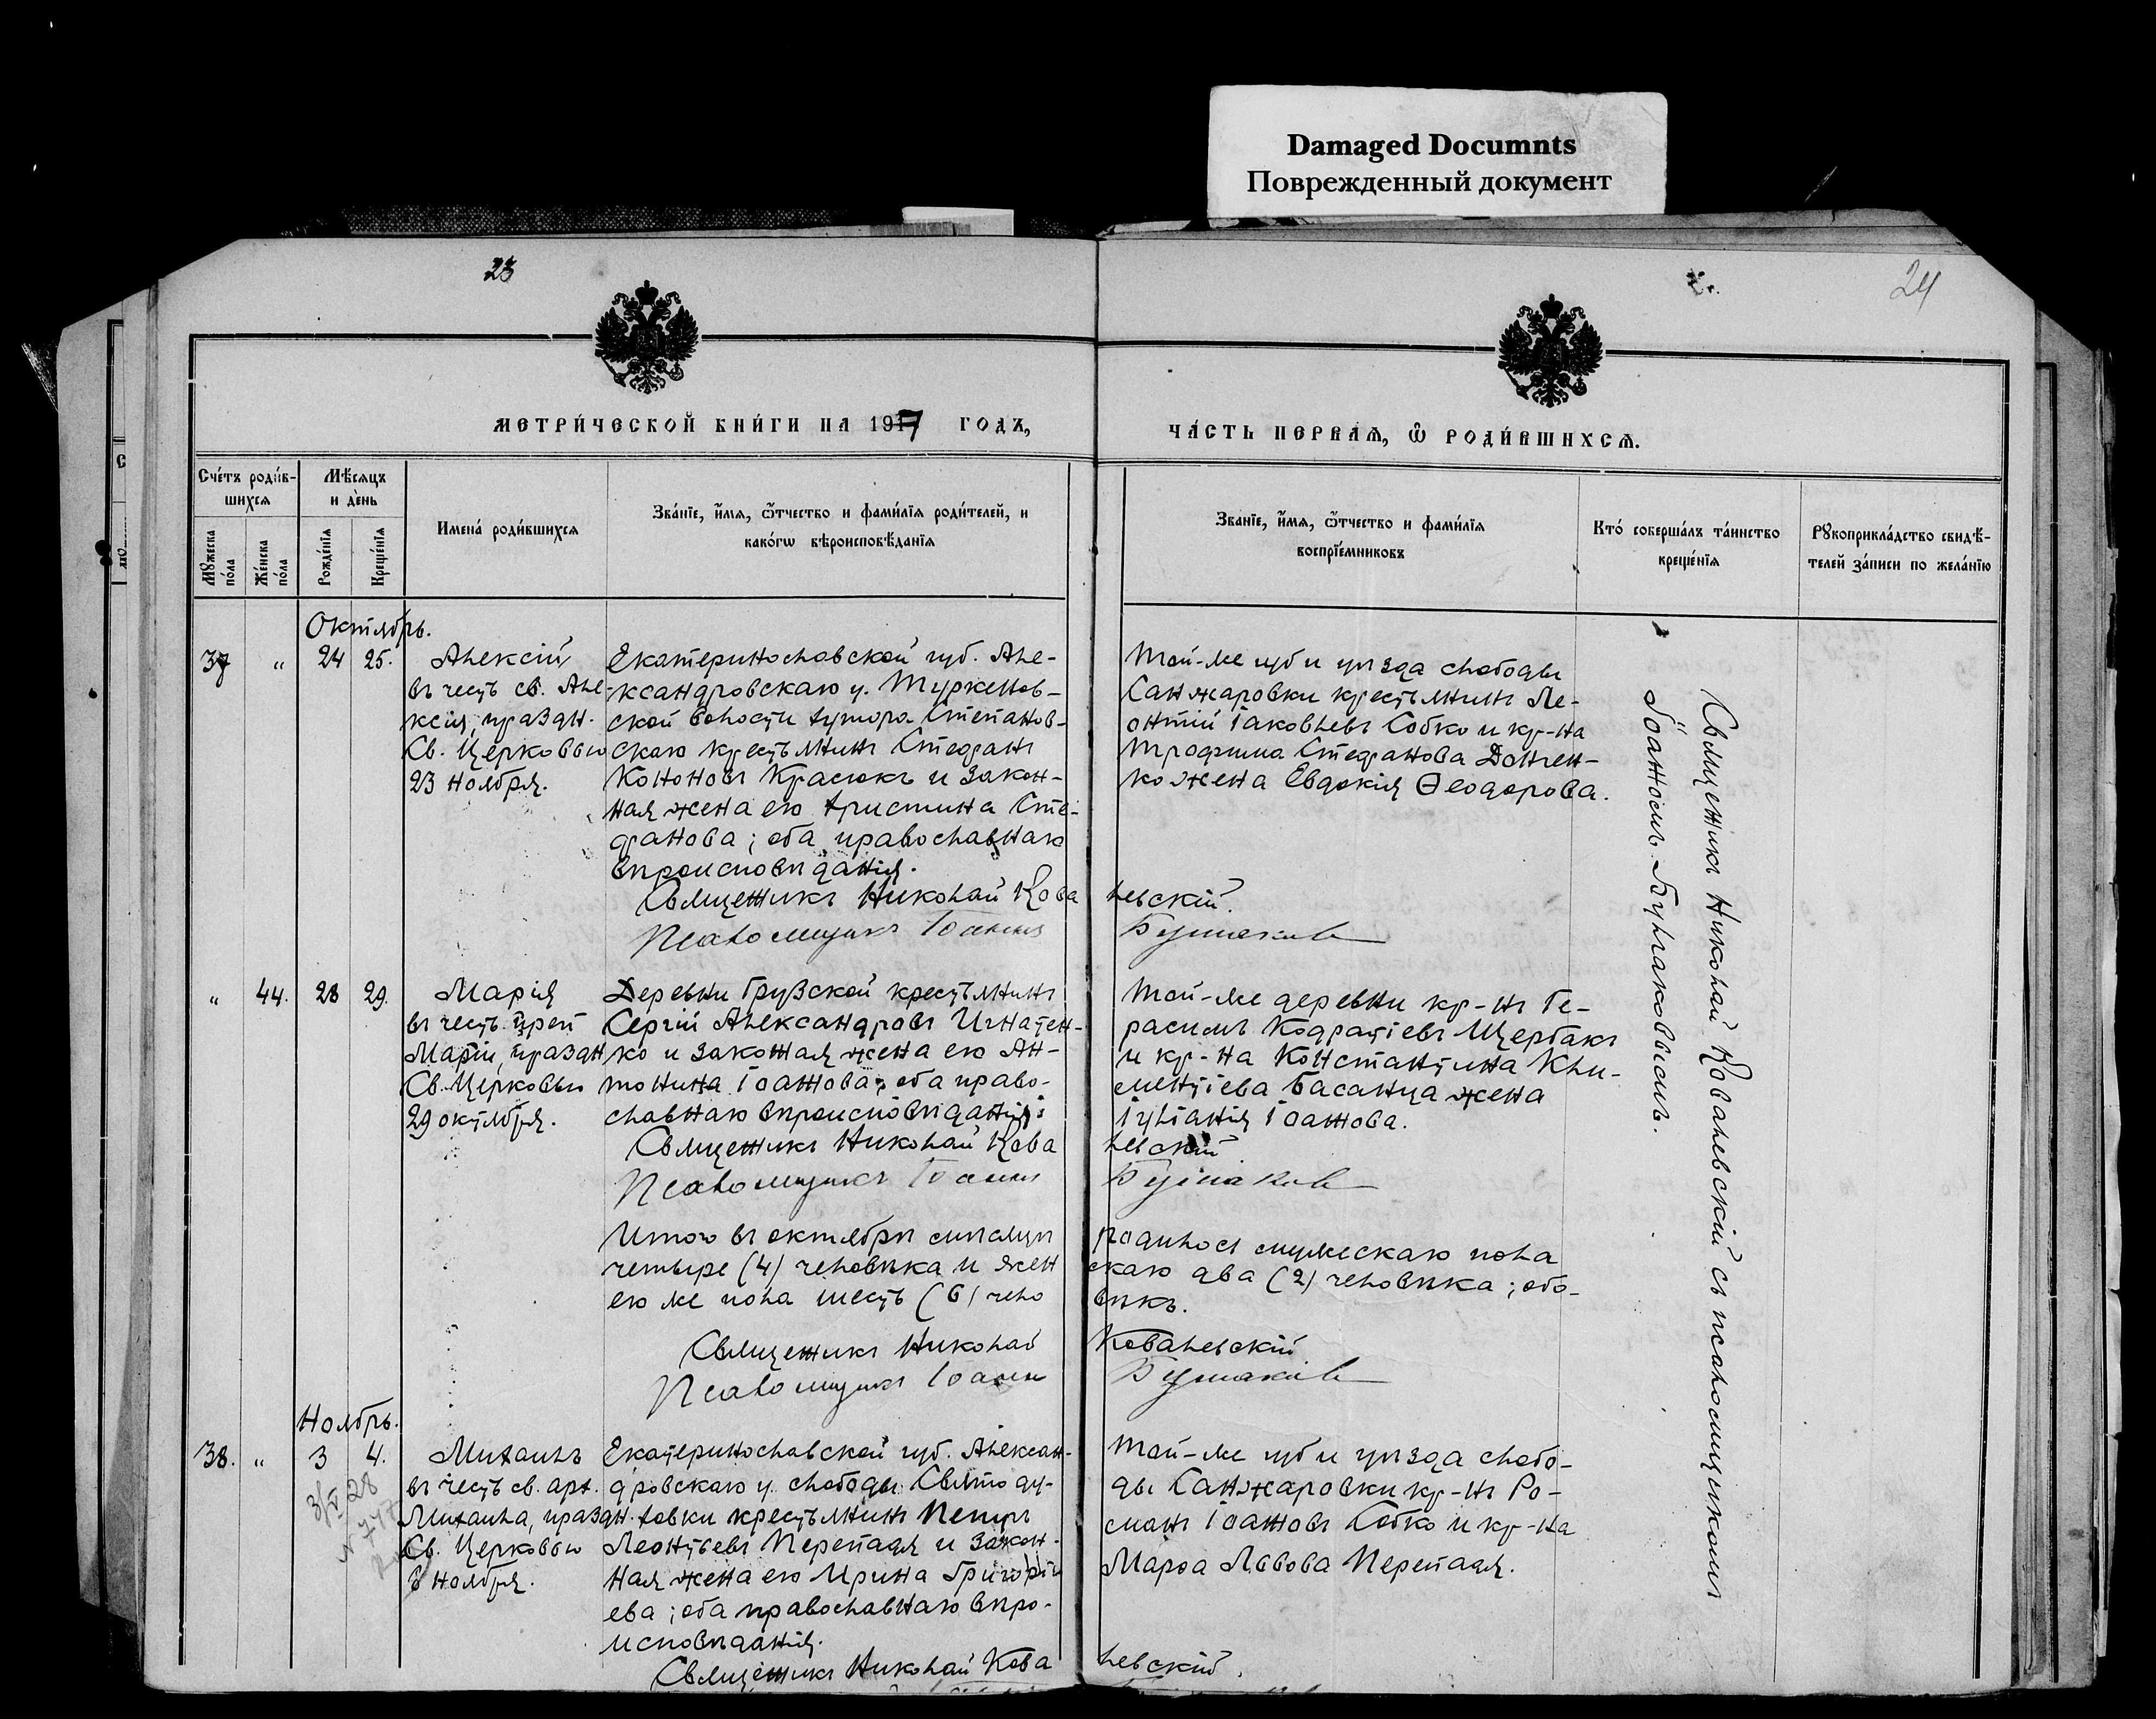 Damaged Documnts
Поврежденный документ
23
24
МЕТРИ́ЧЕСКОЙ КНИ́ГИ НА 1917 ГОДЪ,
ЧА́СТЬ ПЕРВАЯ, Ѡ РОДИ́ВШИХСЯ.
Сче́тъ роди́в-
шихся
Мѣсяцъ
и де́нь
Мужеска по́ла
Же́нска по́ла
Рожде́нїя
Креще́нїя
Имена́ роди́вшихся
Зва́нїе, и́мя, ѻ́тчество и фами́лїя роди́телей, и
како́гѡ вѣроисповѣ́данїя
Зва́нїе, и́мя, ѻ́тчество и фами́лїя
воспрїе́мниковъ
Кто́ соверша́лъ та́инство
креще́нїя
Рукоприкла́дство свидѣ́-
телей за́писи по жела́нїю
Октябрь.
37 " 24 25.
Алексій
въ честь св. Але-
ксія, праздн.
Св. Церковью
23 ноября.
Екатеринославской губ. Але-
ксандровскаго у. Туркенов-
ской волости хутора Степанов-
скаго крестьянинъ Стефанъ
Кононовъ Красюкъ и закон-
ная жена его Христина Сте-
фанова; оба православнаго
вѣроисповѣданія.
Священникъ Николай Кова
левскій.
Псаломщикъ Іоаннъ
Той-же губ и уѣзда слободы
Санжаровки крестьянинъ Ле-
онтій Іаковлевъ Собко и кр-на
Трофима Стефанова Дончен-
ко жена Евдокія Ѳеодорова.
Священникъ Николай Ковалевскій съ псаломщикомъ
Іоанномъ
" 44. 28 29.
Марія
въ честь преп
Маріи, праздн
Св. Церковью
29 октября.
Деревни Грузской крестьянинъ
Сергій Александровъ Игнатен-
ко и законная жена его Ан-
тонина Іоаннова; оба право-
славнаго вѣроисповѣданія:
Священникъ Николай Кова
левскій
Псаломщикъ Іоаннъ
Той-же деревни кр-нъ Ге-
расимъ Кодратіевъ Щербакъ
и кр-на Константина Кли-
ментіева Басанца жена
Іуліанія Іоаннова.
Итого въ октябрѣ мѣсяцѣ родилось мужескаго пола
четыре (4) человѣка и женскаго два (2) человѣка; обо-
его же пола шесть (6) человѣкъ.
Священникъ Николай Ковалевскій
Псаломщикъ Іоаннъ
Ноябрь.
38. " 3 4.
Михаилъ
въ честь св. арх.
Михаила, праздн.
Св. Церковью
8 ноября.
Екатеринославской губ. Алексан-
дровскаго у. слободы Святоду-
ховки крестьянинъ Петръ
Леонтьевъ Перепадя и закон-
ная жена его Ирина Григорі
ева; оба православнаго вѣро-
исповѣданія.
Священникъ Николай Кова
левскій.
Той-же губ и уѣзда слобо-
ды Санжаровки кр-нъ Ро-
манъ Іоанновъ Собко и кр-на
Марѳа Львова Перепадя.